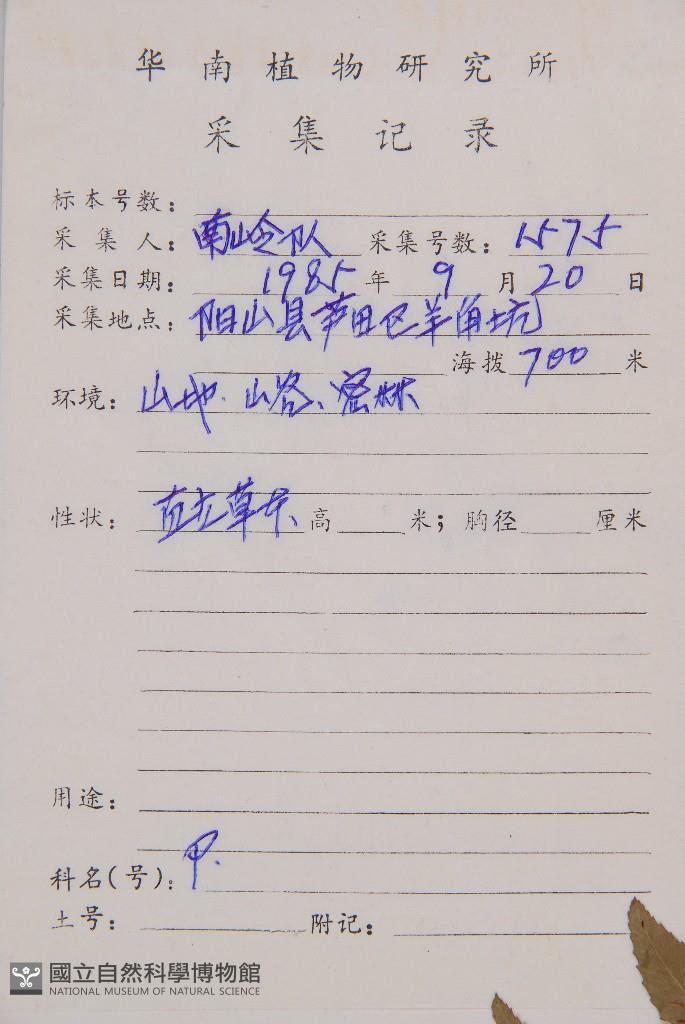 华南植物研究所
采集记录
标本号数：
采集人：南岭队 采集号数：1575
采集日期：1985年9月20日
采集地点：阳山县芦田区羊角坑
海拨700米
环境：山地、山谷、密林
性状：直立草本 高 米；胸径 厘米
用途：
科名(号)：P.
土号： 附记：
國立自然科學博物館
NATIONAL MUSEUM OF NATURAL SCIENCE